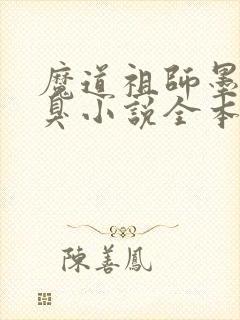 魔道祖師墨
臭小說全本
陳善鳳